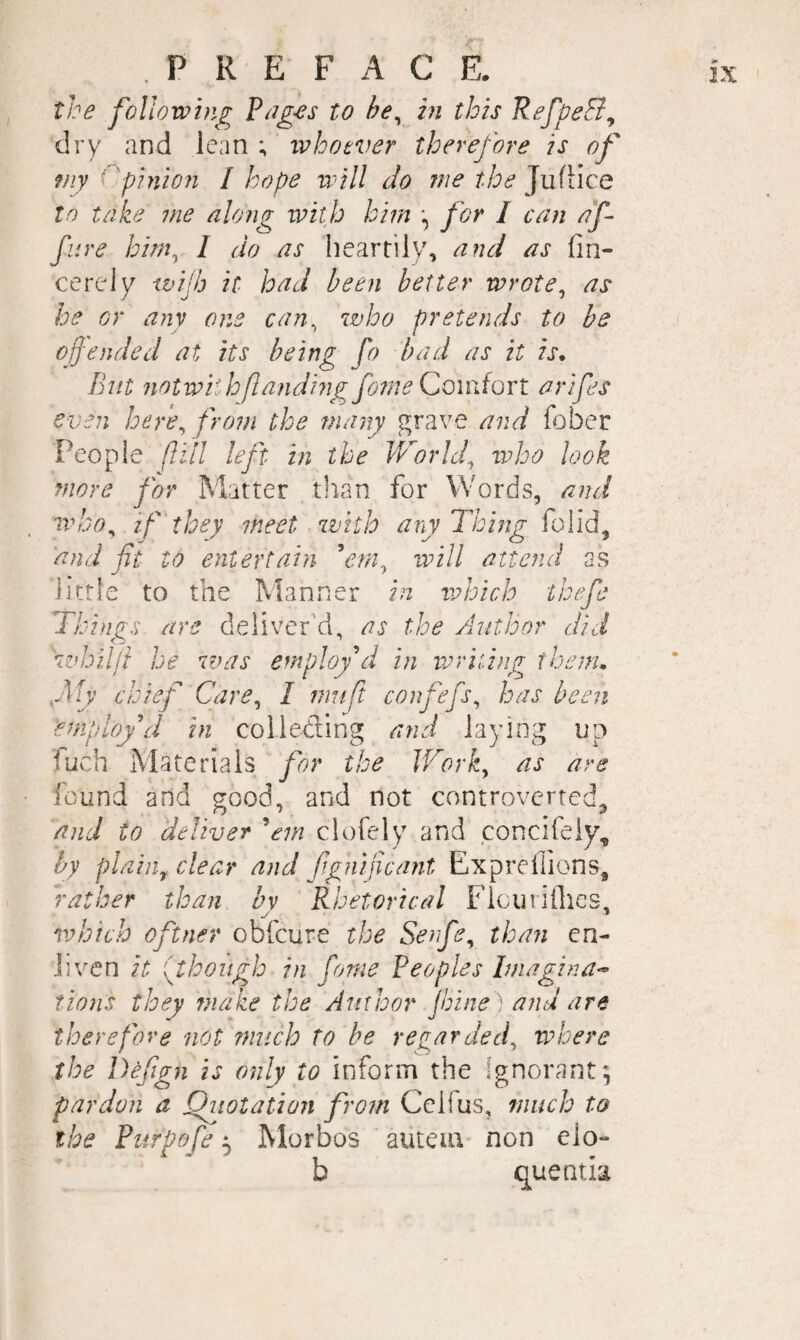 PREFACE. ix
the following Pages to be, in this Reſpect,
dry and lean; whoever therefore is of
my Opinion I hope will do me the Juſtice
to take me along with him; for I can aſ-
ſure him, I do as heartily, and as ſin-
cerely wiſh it had been better wrote, as
he or any one can, who pretends to be
offended at its being ſo bad as it is.
But notwithſtanding ſome Comfort ariſes
even here, from the many grave and ſober
People ſtill left in the World, who look
more for Matter than for Words, and
who, if they meet with any Thing ſolid,
and fit to entertain 'em, will attend as
little to the Manner in which theſe
Things are deliver'd, as the Author did
whilſt he was employ'd in writing them.
My chief Care, I muſt confeſs, has been
employ'd in collecting and laying up
ſuch Materials for the Work, as are
found and good, and not controverted,
and to deliver 'em cloſely and conciſely,
by plain, clear and ſignificant Expreſſions,
rather than by Rhetorical Flouriſhes,
which oftner obſcure the Senſe, than en-
liven it (though in ſome Peoples Imagina-
tions they make the Author ſhine) and are
therefore not much to be regarded, where
the Deſign is only to inform the Ignorant;
pardon a Quotation from Celſus, much to
the Purpoſe; Morbos autem non elo-
b quentia